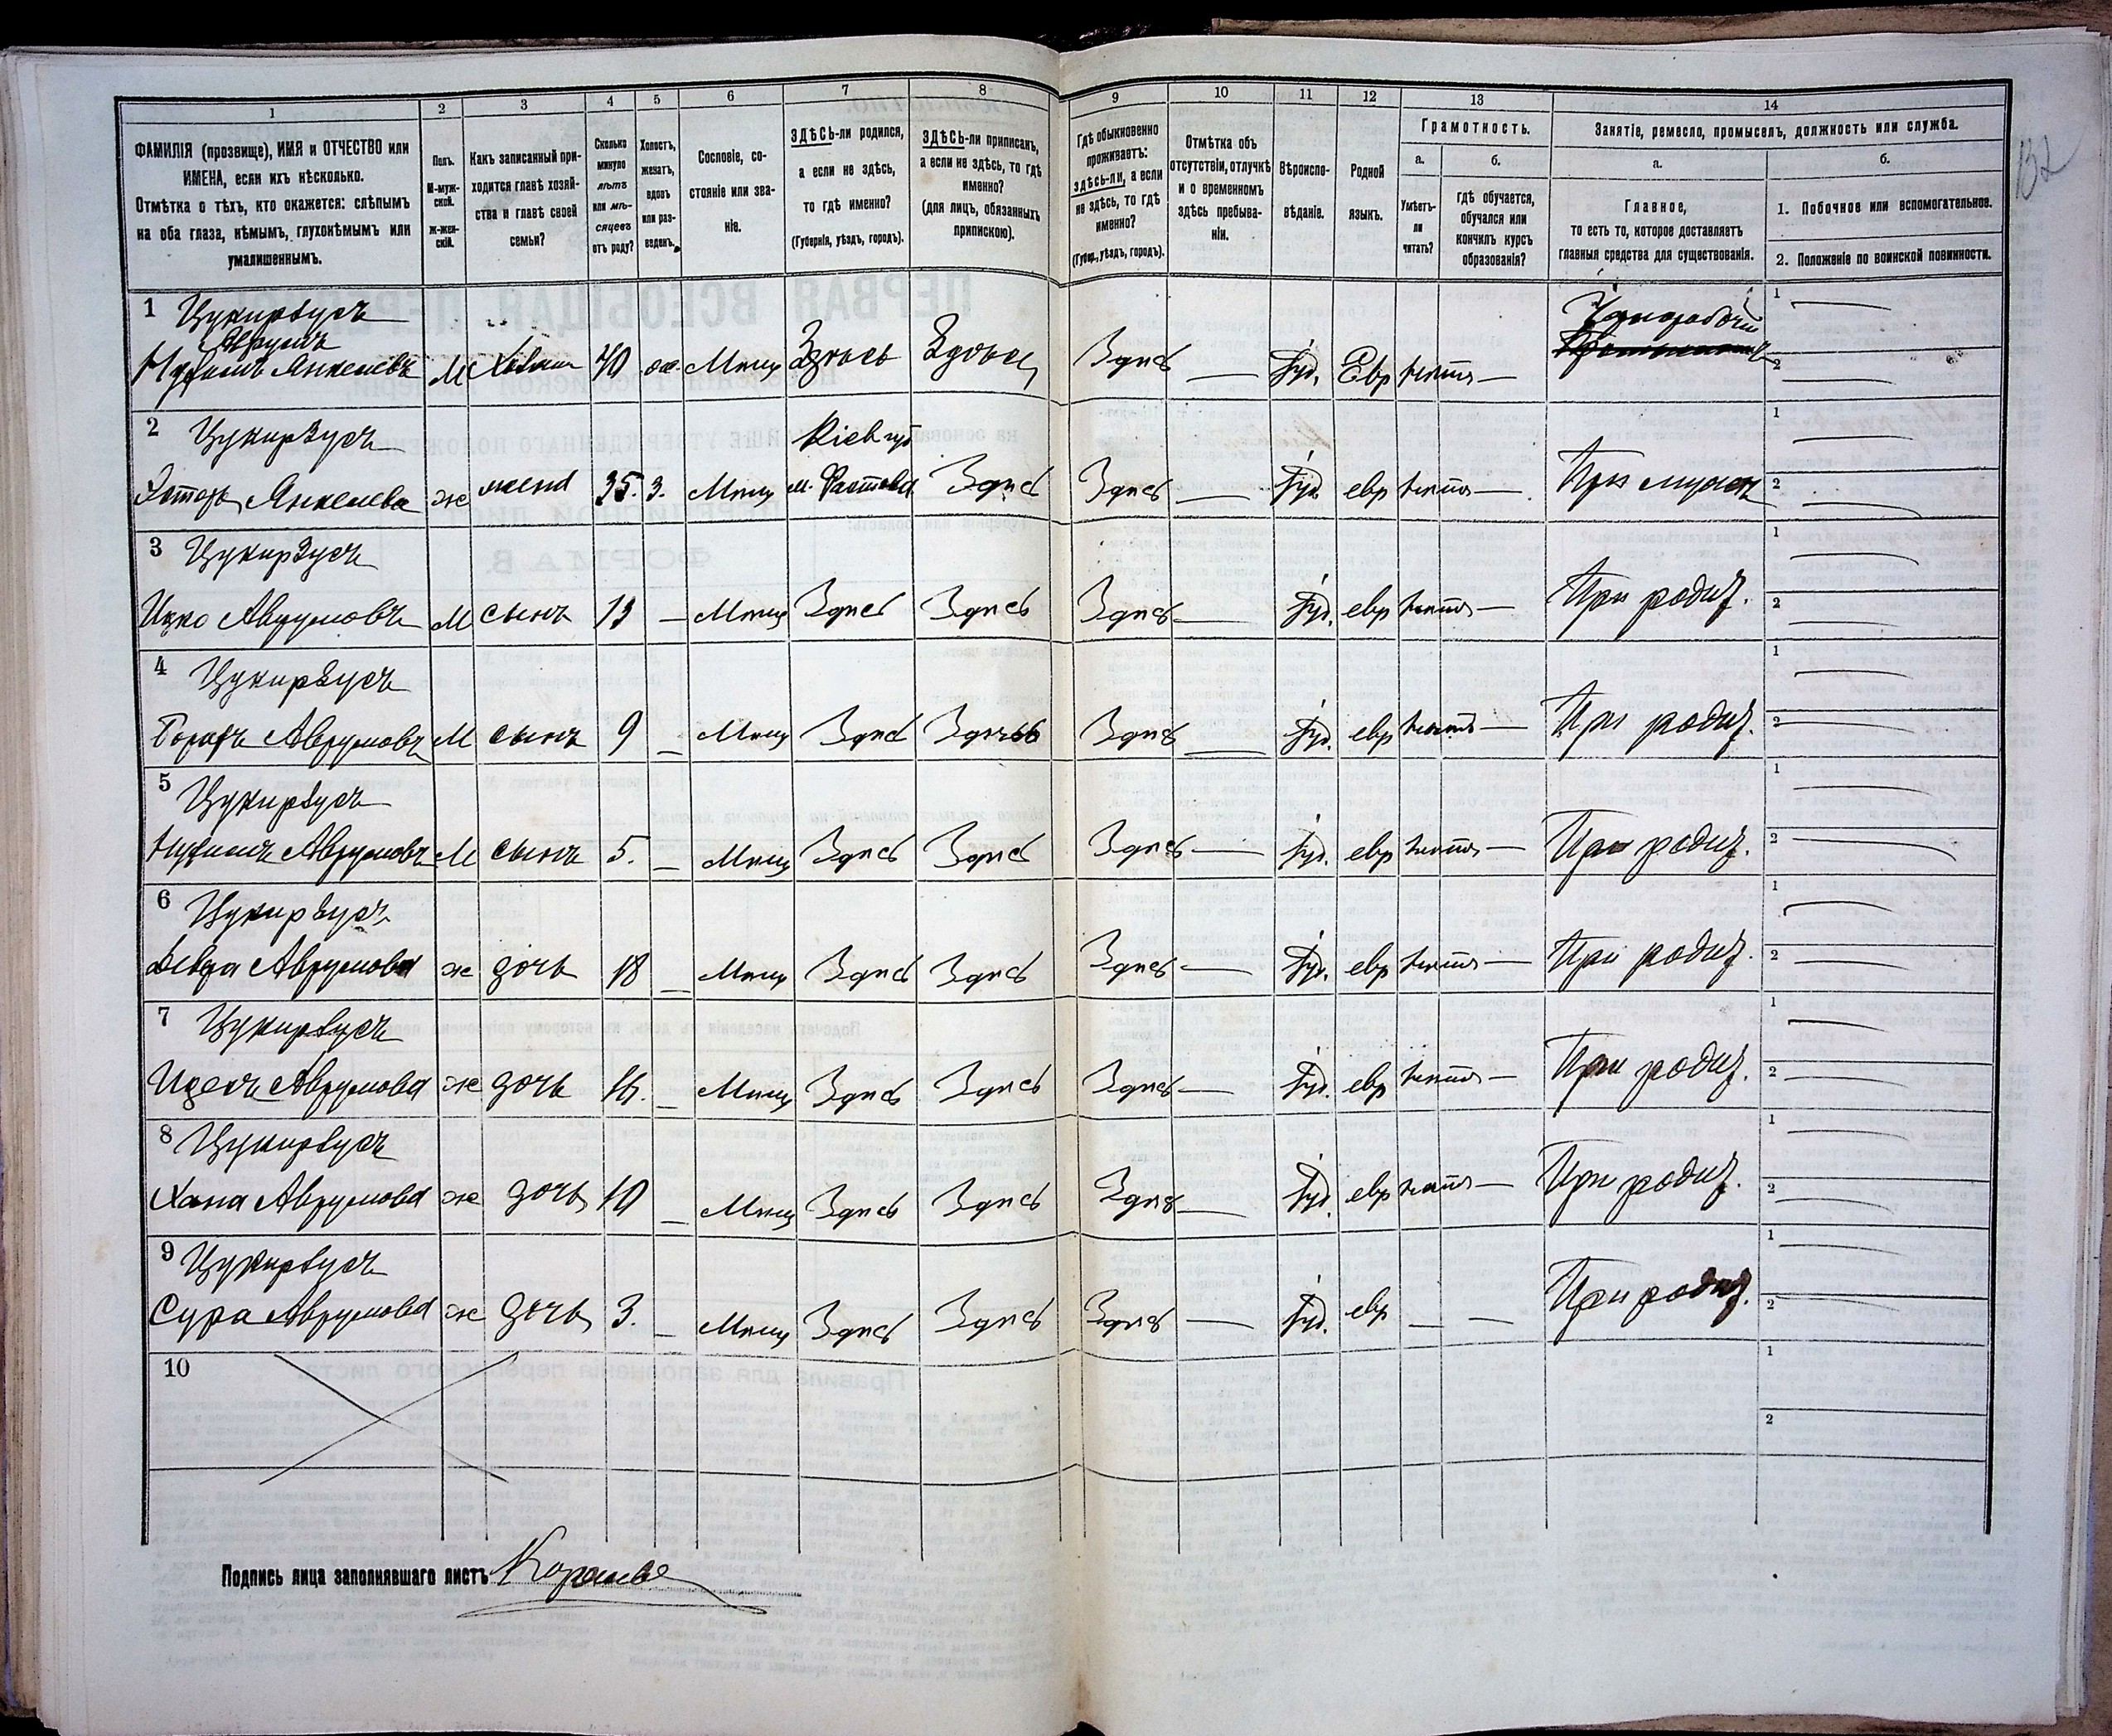 1 2 3 4 5 6 7 8 9 10 11 12 13 14
ФАМИЛІЯ (прозвище), ИМЯ и ОТЧЕСТВО или
ИМЕНА, если ихъ нѣсколько.
Отмѣтка о тѣхъ, кто окажется: слѣпымъ
на оба глаза, нѣмымъ, глухонѣмымъ или
умалишеннымъ.
Полъ.
М-муж-
ской.
Ж-жен-
скій.
Какъ записанный при-
ходится главѣ хозяй-
ства и главѣ своей
семьи?
Сколько
минуло
лѣтъ
или мѣ-
сяцевъ
отъ роду?
Холостъ,
женатъ,
вдовъ
или раз-
веденъ.
Сословіе, со-
стояніе или зва-
ніе.
ЗДѢСЬ-ли родился,
а если не здѣсь,
то гдѣ именно?
(Губернія, уѣздъ, городъ).
ЗДѢСЬ-ли приписанъ,
а если не здѣсь, то гдѣ
именно?
(для лицъ, обязанныхъ
припискою).
Гдѣ обыкновенно
проживаетъ:
здѣсь-ли, а если
не здѣсь, то гдѣ
именно?
(Губер., уѣздъ, городъ).
Отмѣтка объ
отсутствіи, отлучкѣ
и о временномъ
здѣсь пребыва-
ніи.
Вѣроиспо-
вѣданіе.
Родной
языкъ.
Грамотность.
а.
Умѣетъ-
ли
читать?
б.
гдѣ обучается,
обучался или
кончилъ курсъ
образованія?
Занятіе, ремесло, промыселъ, должность или служба.
а.
Главное,
то есть то, которое доставляетъ
главныя средства для существованія.
б.
1. Побочное или вспомогательное.
2. Положеніе по воинской повинности.
132
1 Цукирзусъ
Аврумъ
Нухимъ Янкелевъ М Хозяин 40 ж. Мѣщ Здѣсь Здѣсь Здѣсь — Іуд. Евр нѣтъ —
Чернорабочій
1 —
2 —
2 Цукирзусъ Кіев губ
Эстеръ Янкелева ж жена 35. З. Мѣщ м. Фастова Здѣсь Здѣсь — Іуд евр нѣтъ — При мужѣ
1 —
2 —
3 Цукирзусъ
Ицко Аврумовъ М сынъ 13 — Мѣщ Здѣсь Здѣсь Здѣсь — Іуд. евр нѣтъ — При родит.
1 —
2 —
4 Цукирзусъ
Аврумовъ М сынъ 9 — Мѣщ Здѣсь Здѣсь Здѣсь — Іуд. евр нѣтъ — При родит.
1 —
2 —
5 Цукирзусъ
Нухимъ Аврумовъ М сынъ 5. — Мѣщ Здѣсь Здѣсь Здѣсь — Іуд. евр нѣтъ — При родит.
1 —
2 —
6 Цукирзусъ
Аврумова ж дочь 18 — Мѣщ Здѣсь Здѣсь Здѣсь — Іуд. евр нѣтъ — При родит.
1 —
2 —
7 Цукирзусъ
Аврумова ж дочь — Мѣщ Здѣсь Здѣсь Здѣсь — Іуд. евр нѣтъ — При родит.
1 —
2 —
8 Цукирзусъ
Хана Аврумова ж дочь 10 — Мѣщ Здѣсь Здѣсь Здѣсь — Іуд. евр нѣтъ — При родит.
1 —
2 —
9 Цукирзусъ
Сура Аврумова ж дочь 3. — Мѣщ Здѣсь Здѣсь Здѣсь — Іуд. евр — — При родит.
1 —
2 —
10
1
2
Подпись лица заполнявшаго листъ